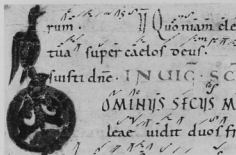 rum. Quoniam ele
tua super caelos deus.
suisti dne. IN UIG. SC
OMINUS SECUS M
leae uidit duos f